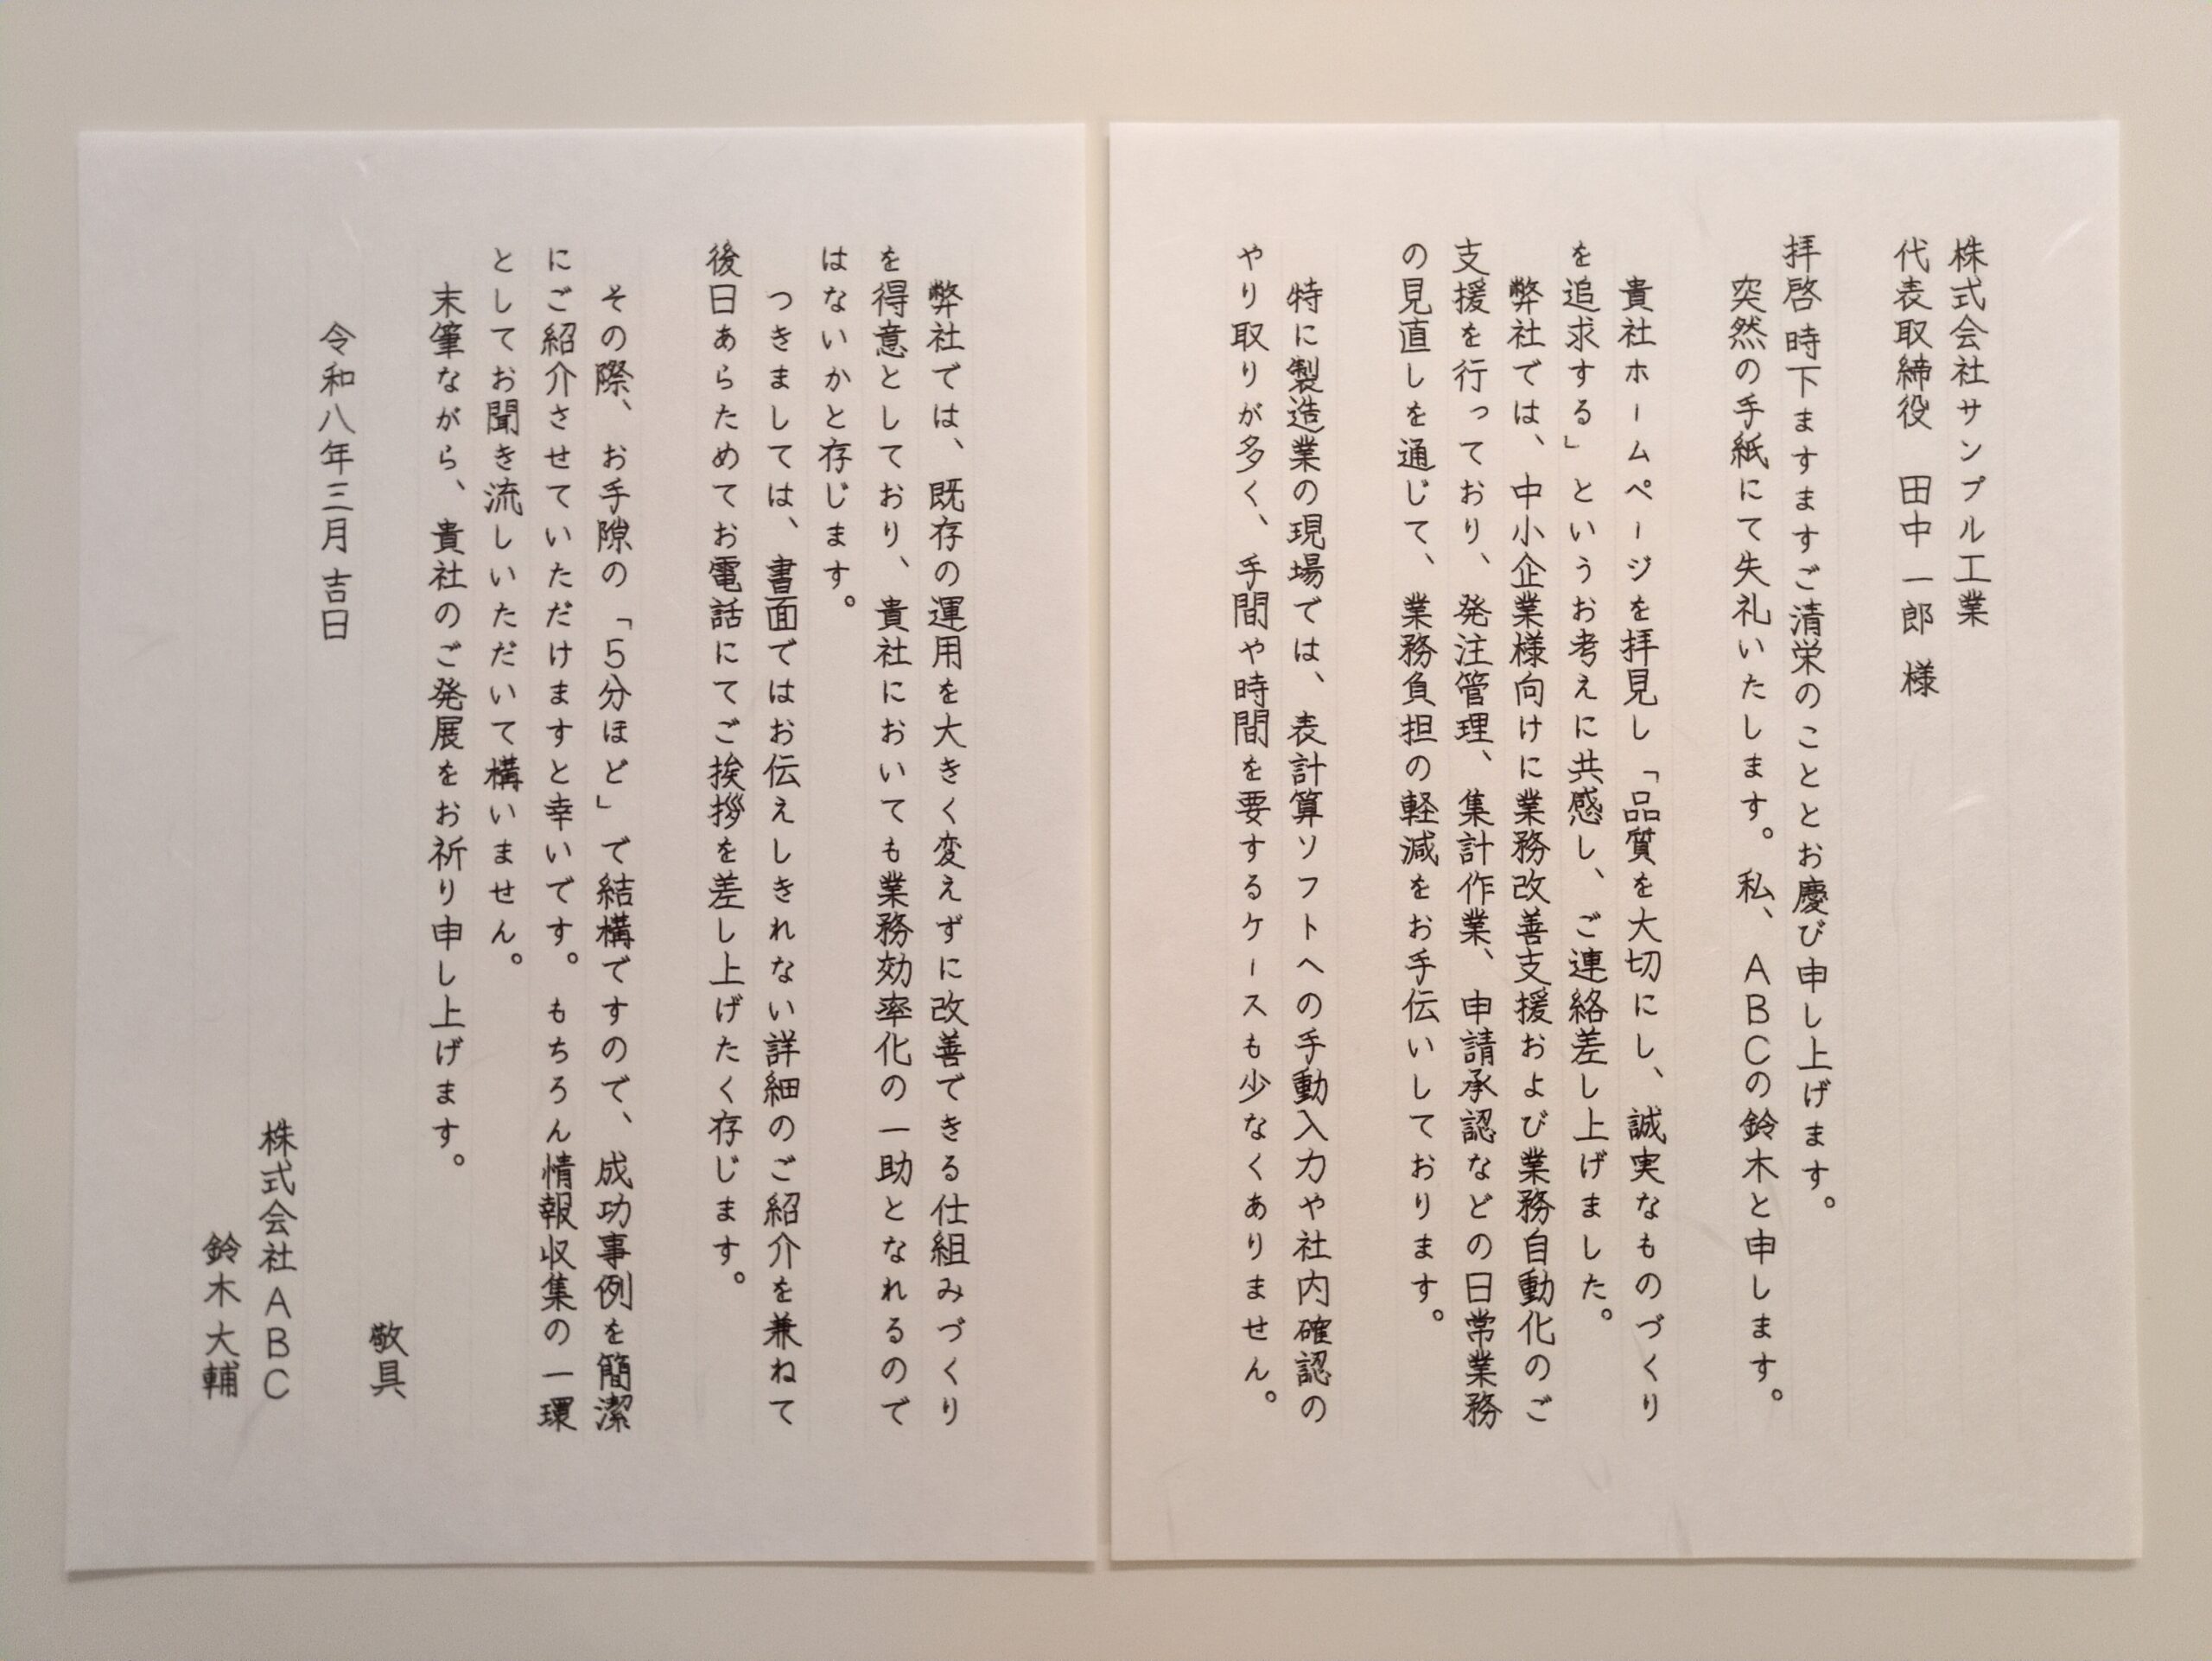 株式会社サンプル工業
代表取締役　田中一郎 様
拝啓 時下ますますご清栄のこととお慶び申し上げます。
突然の手紙にて失礼いたします。私、ABCの鈴木と申します。
貴社ホームページを拝見し「品質を大切にし、誠実なものづくり
を追求する」というお考えに共感し、ご連絡差し上げました。
弊社では、中小企業様向けに業務改善支援および業務自動化のご
支援を行っており、発注管理、集計作業、申請承認などの日常業務
の見直しを通じて、業務負担の軽減をお手伝いしております。
特に製造業の現場では、表計算ソフトへの手動入力や社内確認の
やり取りが多く、手間や時間を要するケースも少なくありません。
弊社では、既存の運用を大きく変えずに改善できる仕組みづくり
を得意としており、貴社においても業務効率化の一助となれるので
はないかと存じます。
つきましては、書面ではお伝えしきれない詳細のご紹介を兼ねて
後日あらためてお電話にてご挨拶を差し上げたく存じます。
その際、お手隙の「5分ほど」で結構ですので、成功事例を簡潔
にご紹介させていただけますと幸いです。もちろん情報収集の一環
としてお聞き流しいただいて構いません。
末筆ながら、貴社のご発展をお祈り申し上げます。
敬具
令和八年三月 吉日
株式会社 ABC
鈴木 大輔